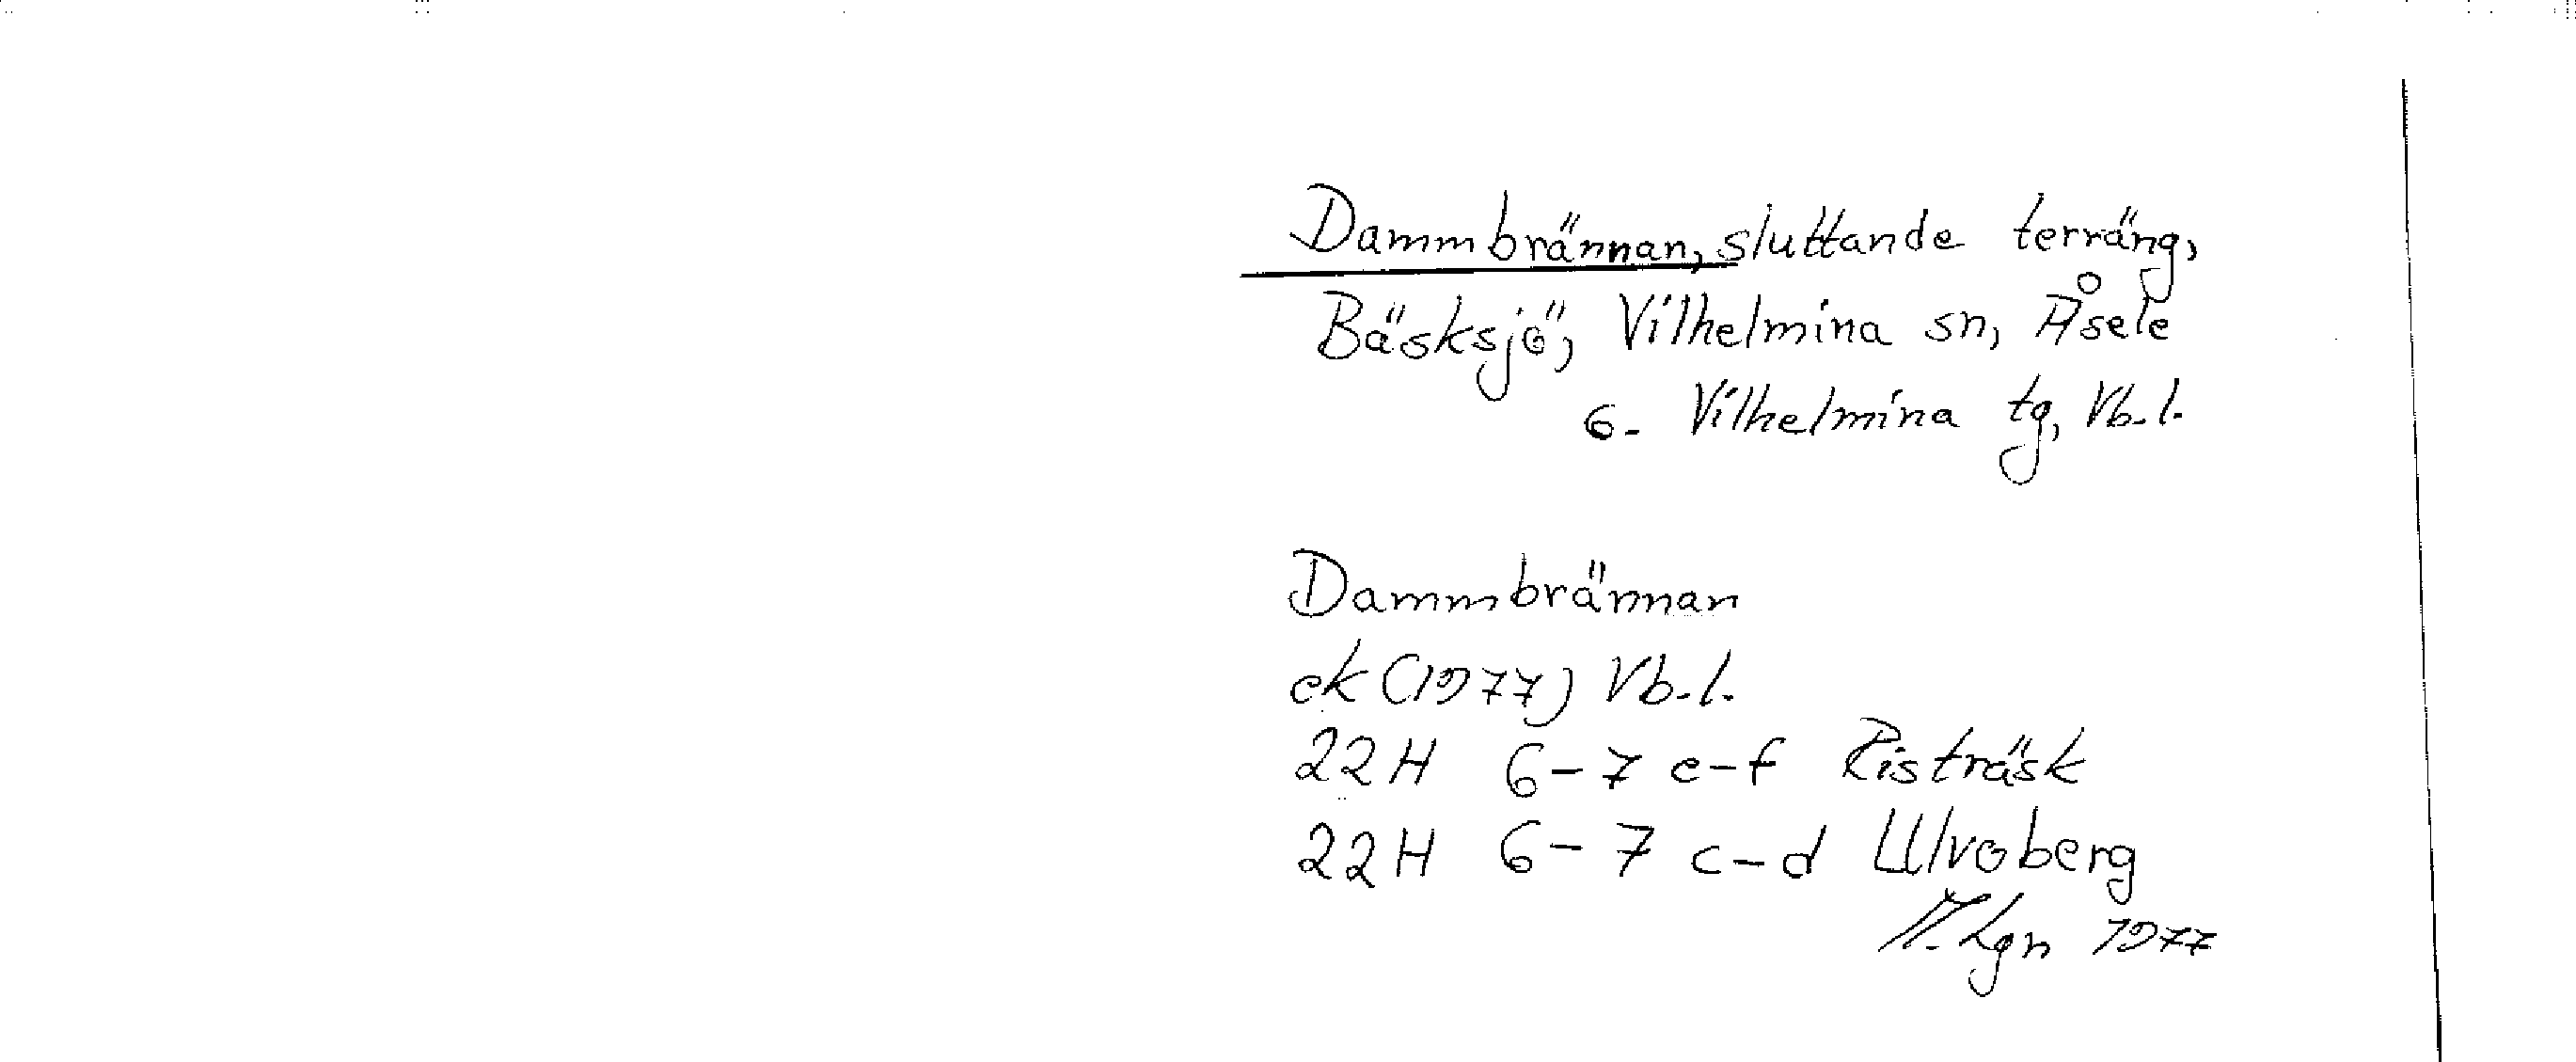 Dammbrännan, sluttande terräng,
Bäsksjö, Vilhelmina sn, Åsele
o. Vilhelmina tg, Vb. l.
Dammbrännan
ek (1977) Vb. l.
22H 6-7 e-f Risträsk
22H 6-7 c-d Ulvoberg
A. Lgn 1977